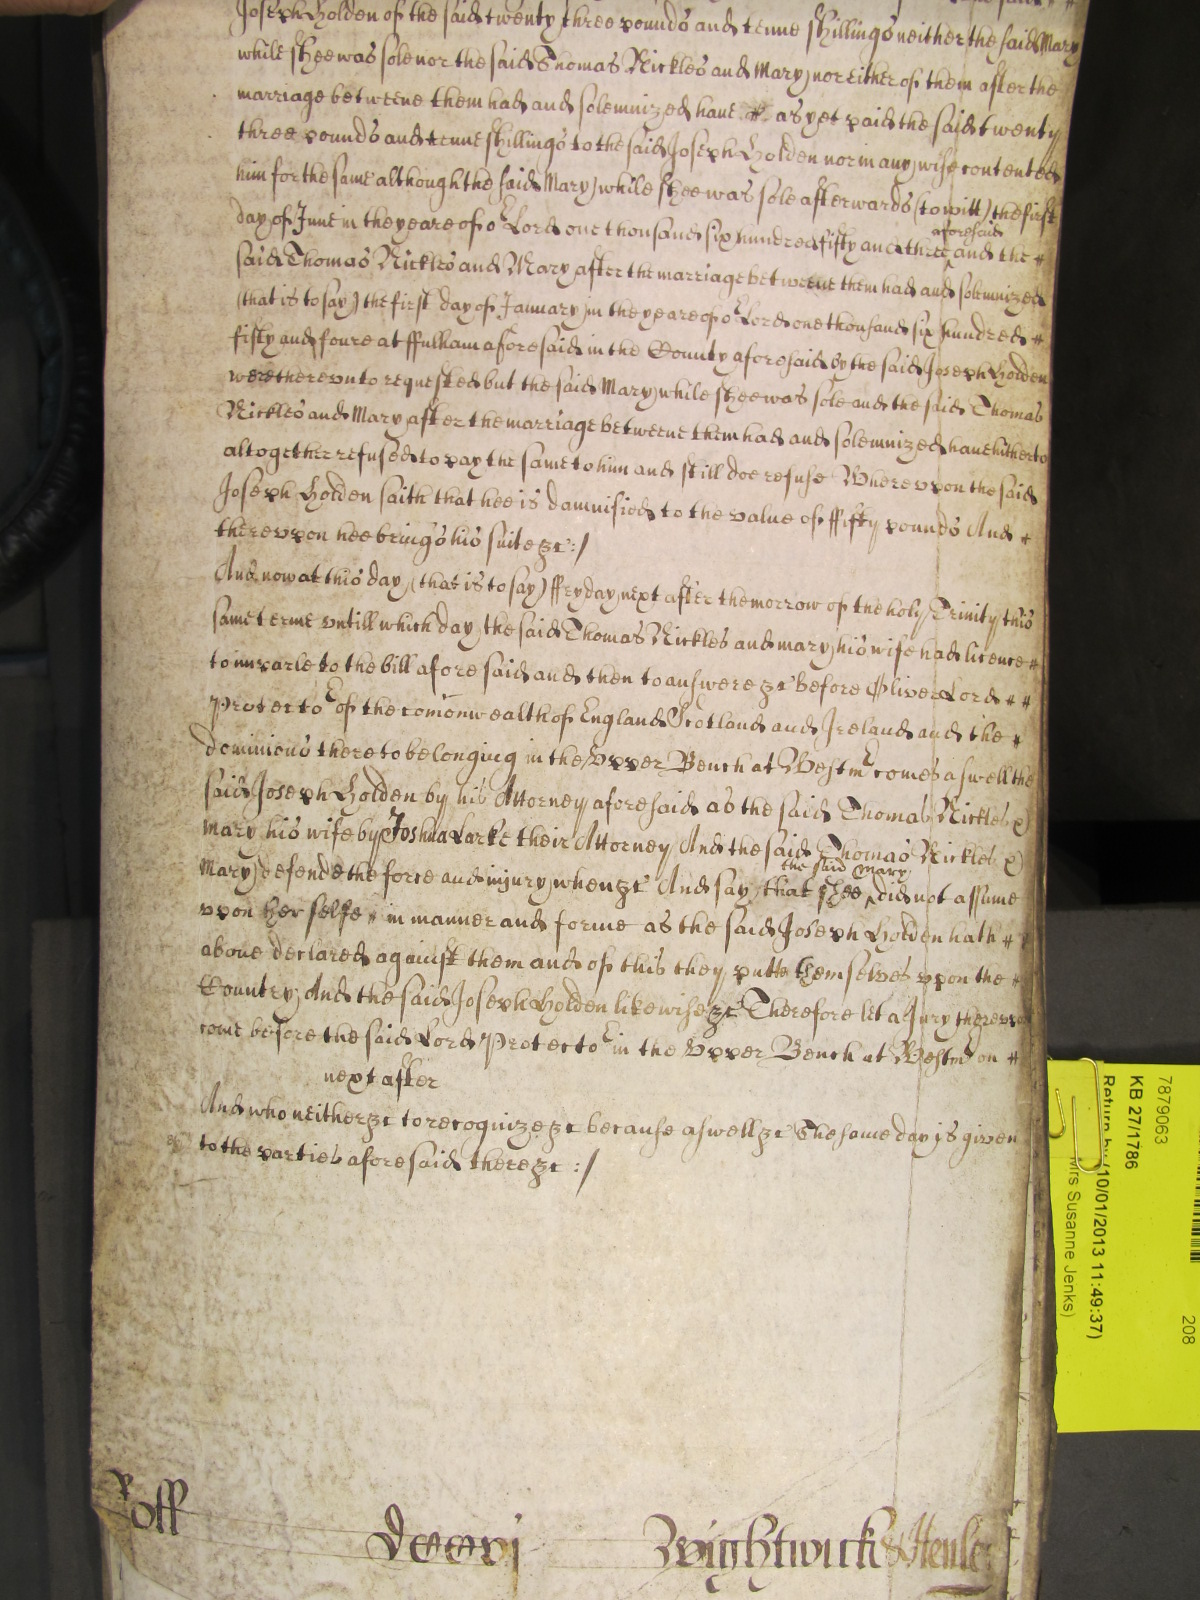 Joseph Holden of the said twenty three pounds and tenne shillings neither the said Mary
while shee was sole nor the said Thomas Nickles and Mary nor either of them after the
marriage betweene them had and solemnized haue # as yet paid the said twenty
three pounds and tenne shillings to the said Joseph Holden nor in any wise contented
him for the same although the said Mary while shee was sole afterwards (to witt) the first
day of June in the yeare of or Lord one thousand six hundred fifty and three aforesaid and the #
said Thomas Nickles and Mary after the marriage betweene them had and solemnized
(that is to say) the first day of January in the yeare of or Lord one thousand six hundred #
fifty and foure at ffulham aforesaid in the County aforesaid by the said Joseph Holden
were therevnto requested but the said Mary while shee was sole and the said Thomas
Nickles and Mary after the marriage betweene them had and solemnized haue hitherto
altogether refused to pay the same to him and still doe refuse Wherevpon the said
Joseph Holden saith that hee is damnified to the value of ffifty pounds And #
therevpon hee brings his suite &c :/
And now at this day (that is to say) ffryday next after the morrow of the holy Trinity this
same terme vntill which day the said Thomas Nickles and mary his wife had licence #
to imparle to the bill aforesaid and then to answere &c before Oliver Lord # #
Protector of the comonwealth of England Scotland and Ireland and the #
dominions thereto belonging in the Vpper Bench at Westmr comes aswell the
said Joseph Holden by his Attorney aforesaid as the said Thomas Nickles &
Mary his wife by Joshua Larke their Attorney And the said Thomas Nickles &
Mary defende the force and iniury when &c And say that shee the said Mary did not assume
vpon her selfe # in manner and forme as the said Joseph Holden hath #
aboue declared against them and of this they putt themselves vpon the #
Country And the said Joseph Holden likewise &c Therefore let a Jury therevpon
come before the said Lord Protector in the Vpper Bench at Westmr on #
next after
And who neither &c to recognize &c because aswell &c The same day is given
to the parties aforesaid there &c :/
Roff
Wightwick & Henle
7879063
KB 27/1786
Return by (10/01/2013 11:49:37)
Mrs Susanne Jenks)
208